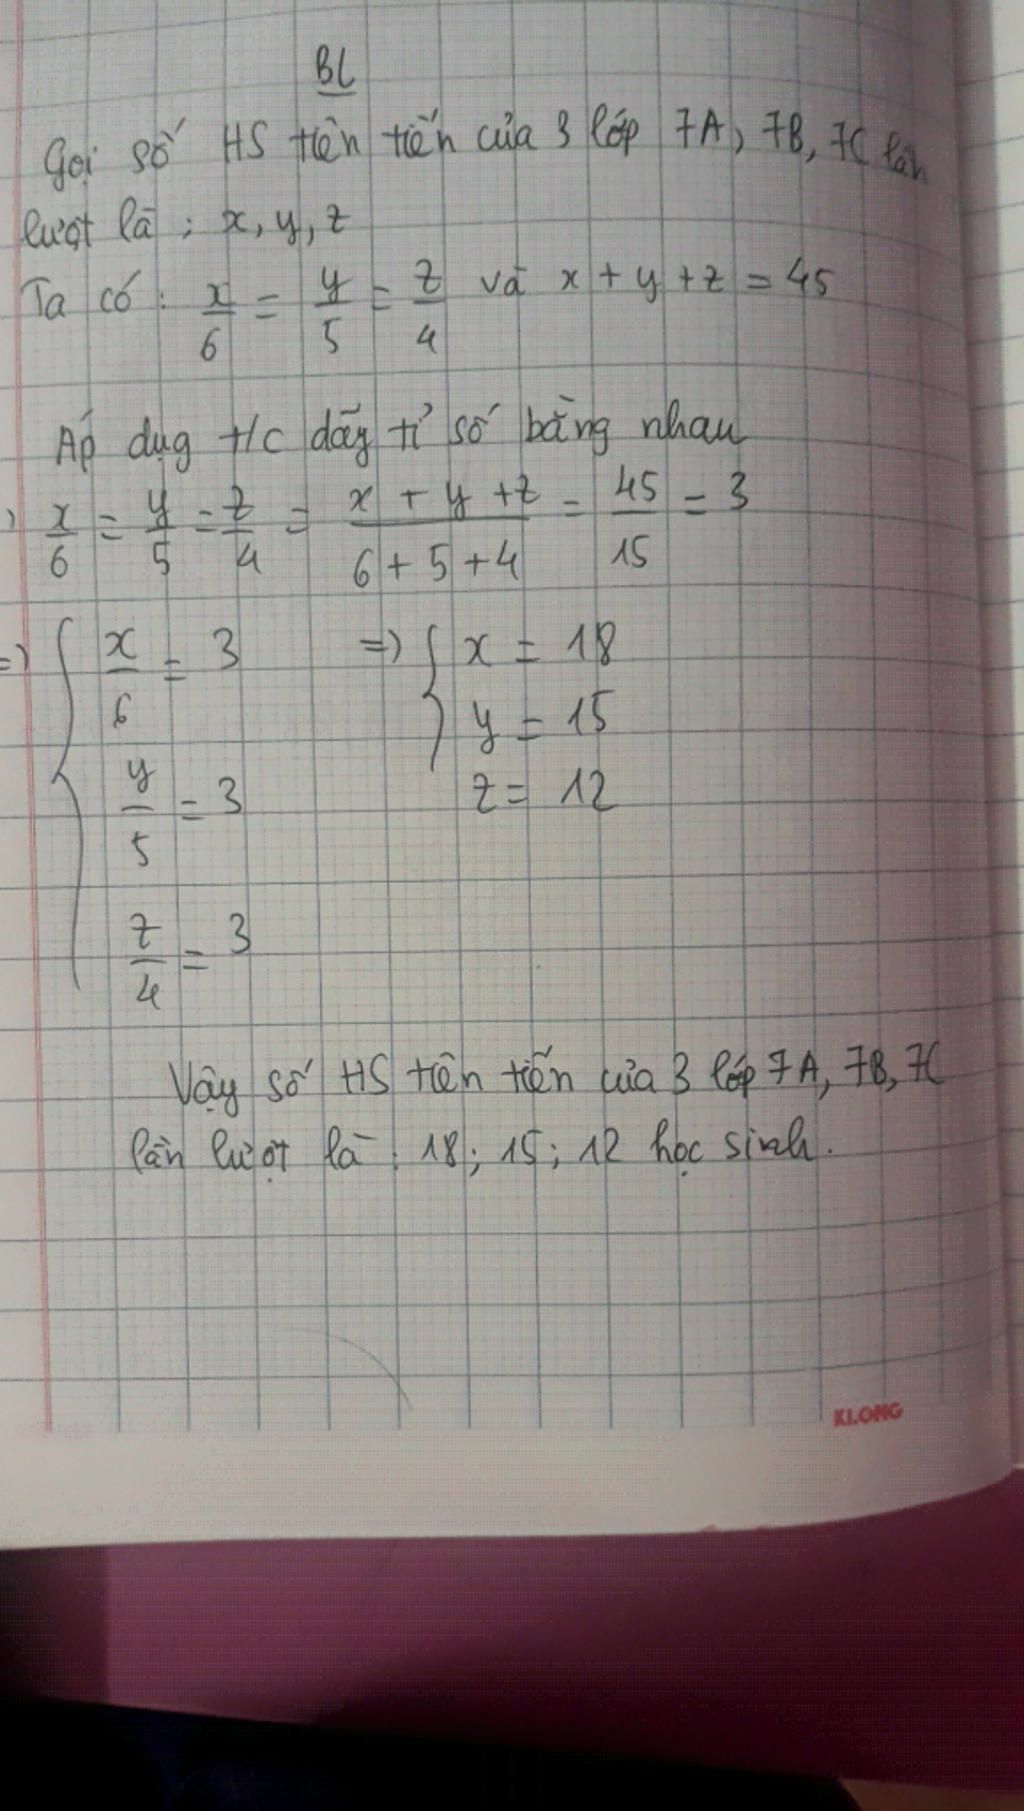 BL
Gọi số HS tiên tiến của 3 lớp 7A, 7B, 7C lần
lượt là : x, y, z
Ta có : x/6 = y/5 = z/4 và x + y + z = 45
Áp dụg t/c dãy tỉ số bằng nhau
x/6 = y/5 = z/4 = (x + y + z)/(6 + 5 + 4) = 45/15 = 3
=> { x/6 = 3 => { x = 18
y = 15
y/5 = 3 z = 12
z/4 = 3
Vậy số HS tiên tiến của 3 lớp 7A, 7B, 7C
lần lượt là : 18; 15; 12 học sinh.
KLONG